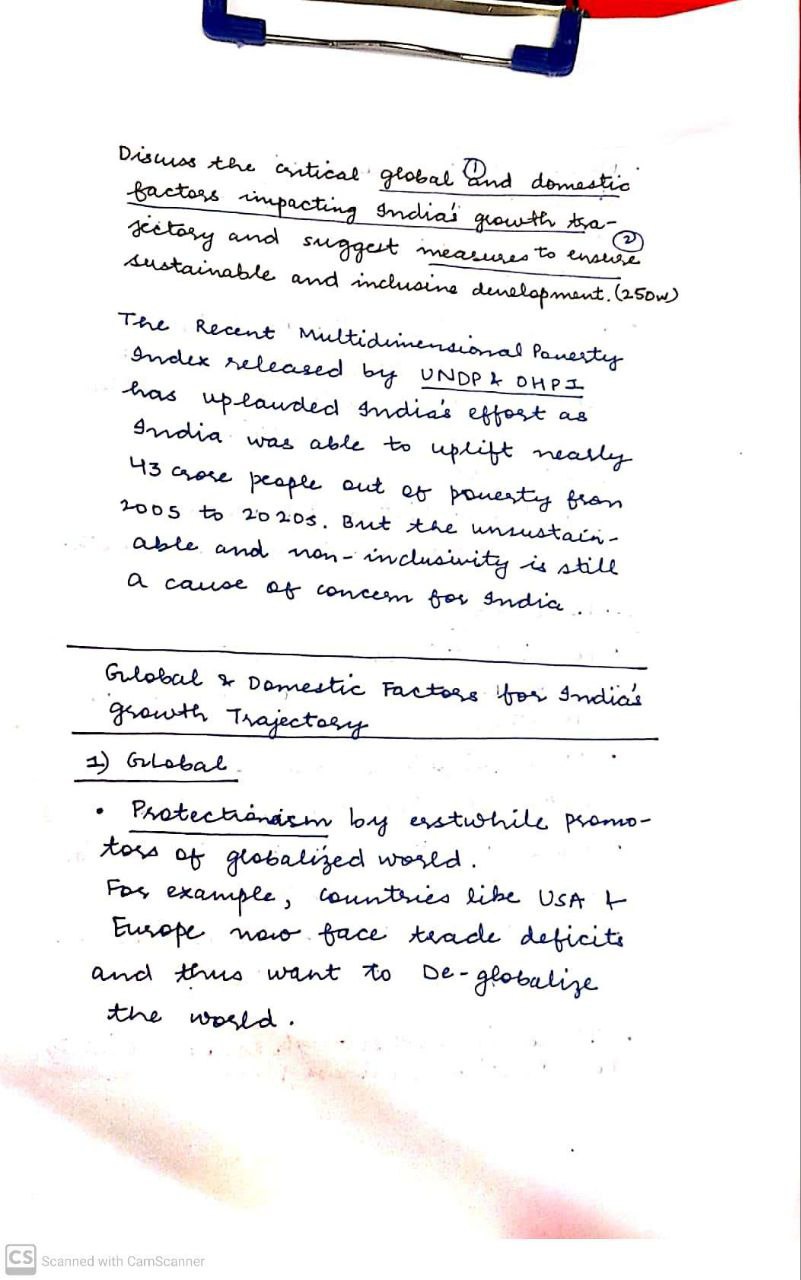 Discuss the critical global ① and domestic
factors impacting India's growth tra-
jectory and suggest measures to ensure ②
sustainable and inclusive development. (250w)
The Recent Multidimensional Poverty
Index released by UNDP & OHPI
has uplauded India's effort as
India was able to uplift nearly
43 crore people out of poverty from
2005 to 2020s. But the unsustain-
able and non-inclusivity is still
a cause of concern for India.
Global & Domestic Factors for India's
growth Trajectory
1) Global
• Protectionism by erstwhile promo-
tors of globalized world.
For example, countries like USA &
Europe now face trade deficits
and thus want to De-globalize
the world.
CS Scanned with CamScanner